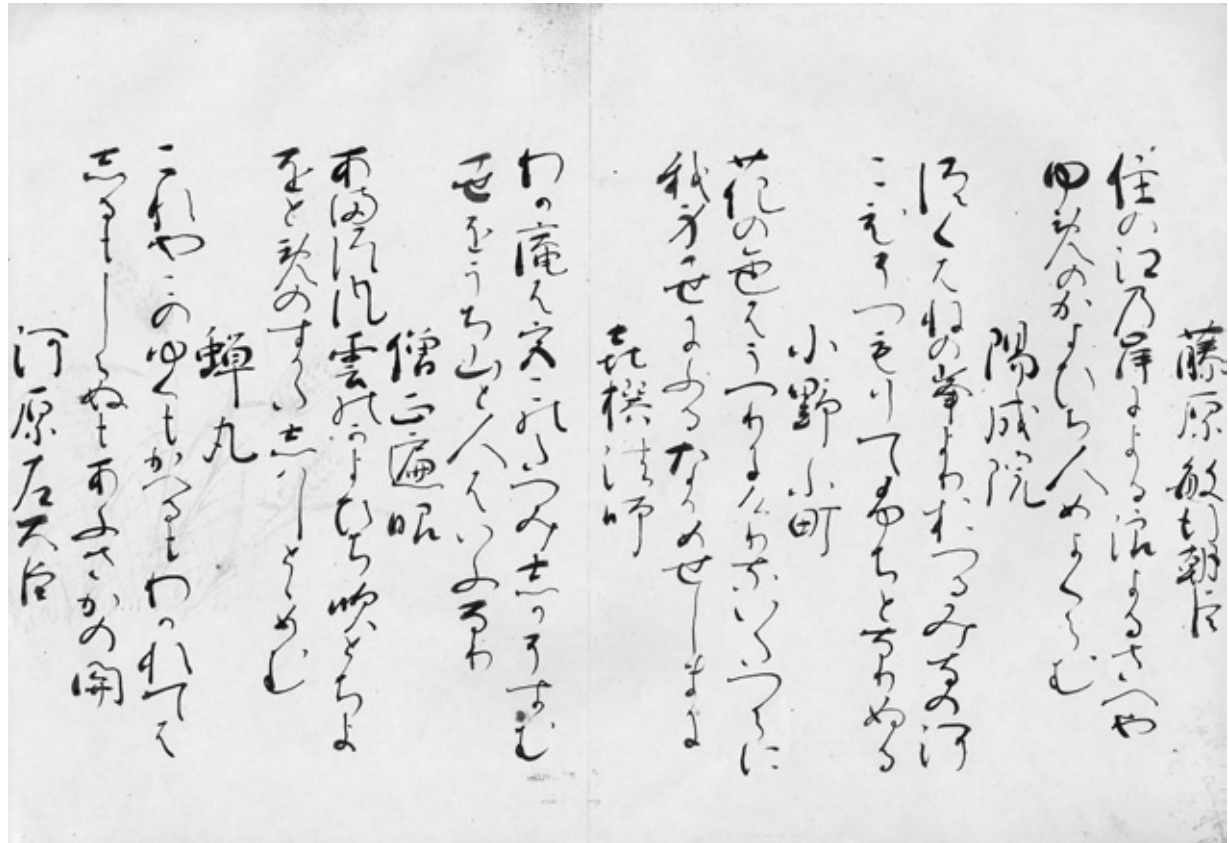 藤原敏行朝臣
住の江乃岸による浪よるさへや
ゆめのかよひち人めよくらむ
陽成院
つくはねの峯よりおつるみなの河
こひそつもりてふちとなりぬる
小野小町
花の色はうつりにけりないたつらに
我身世にふるなかめせしまに
喜撰法師
わか庵は
世をうち山と人はいふなり
僧正遍昭
あまつ風雲のかよひち吹とちよ
をとめのすかたしはしとゝめむ
蝉丸
これやこのゆくもかへるもわかれては
しるもしらぬもあふさかの関
河原左大臣